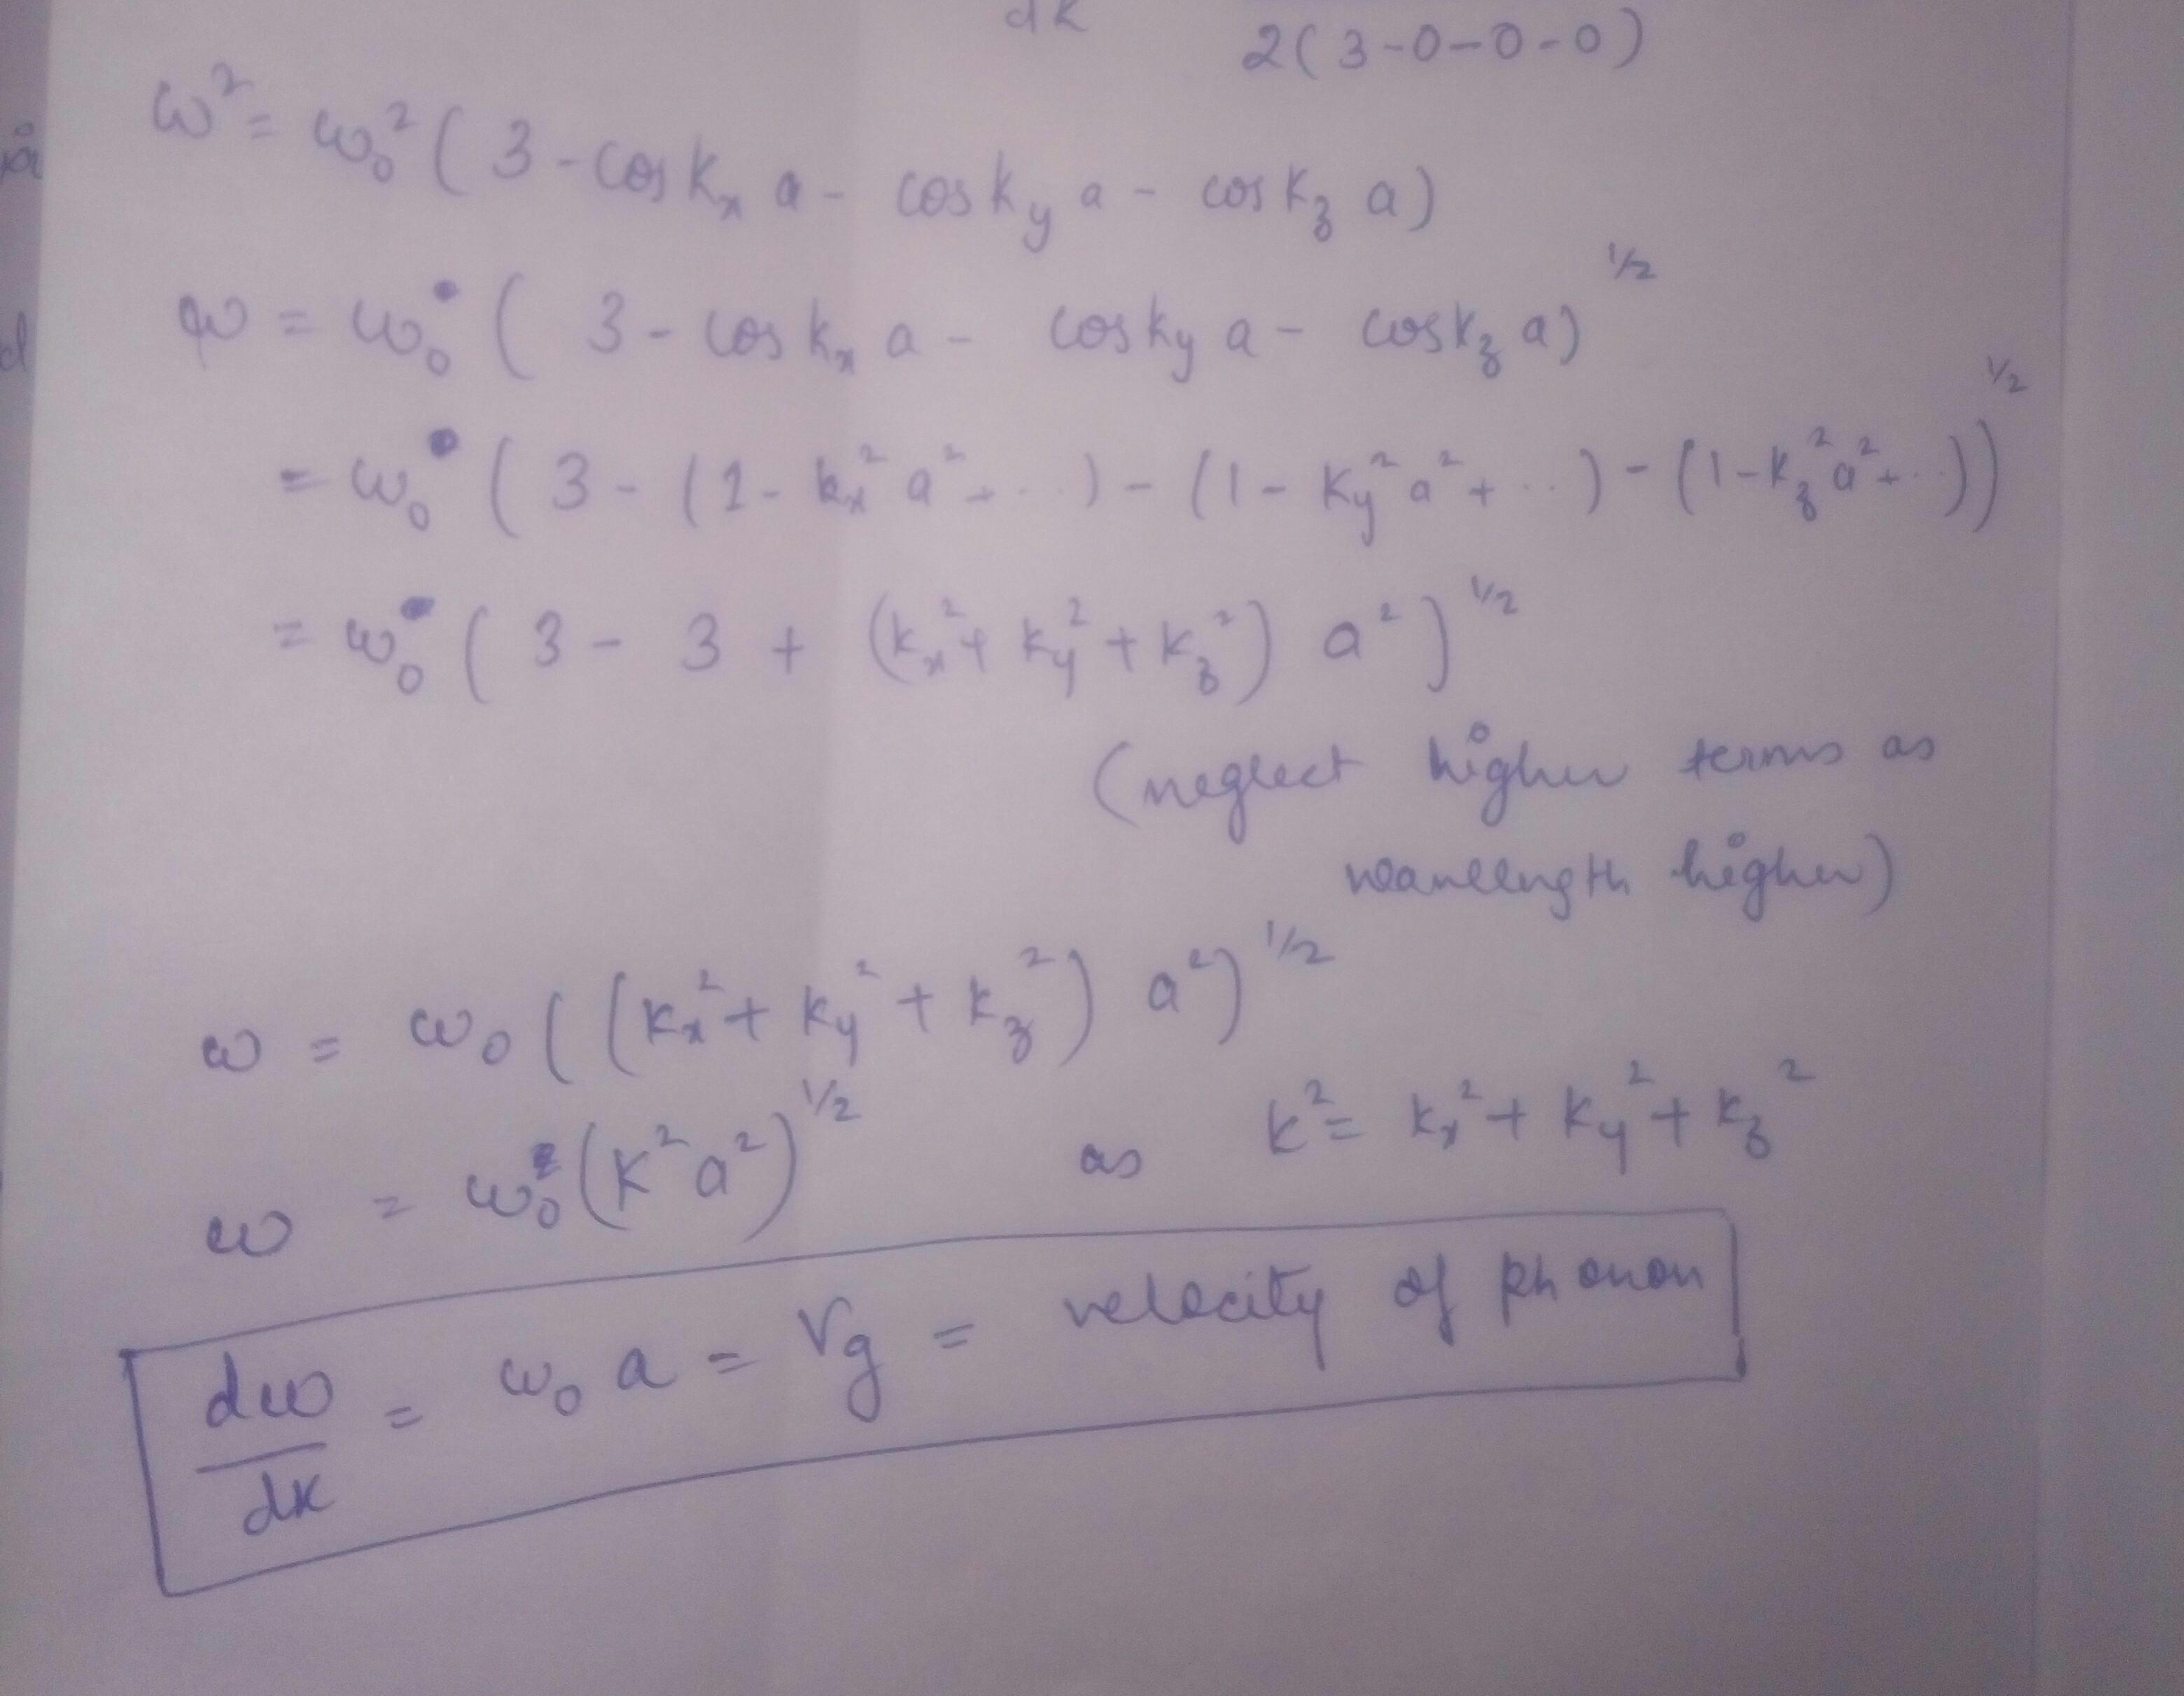 dk
2(3-0-0-0)
ω² = ω₀² ( 3 - cos kₓ a - cos k_y a - cos k_z a)
ω = ω₀ ( 3 - cos kₓ a - cos k_y a - cos k_z a)^1/2
= ω₀ ( 3 - (1 - kₓ² a² + ...) - (1 - k_y² a² + ...) - (1 - k_z² a² + ...))^1/2
= ω₀ ( 3 - 3 + (kₓ² + k_y² + k_z²) a²)^1/2
(neglect higher terms as
wavelength higher)
ω = ω₀ ( (kₓ² + k_y² + k_z²) a²)^1/2
ω = ω₀ (k² a²)^1/2 as k² = kₓ² + k_y² + k_z²
dω/dk = ω₀ a = Vg = velocity of phonon